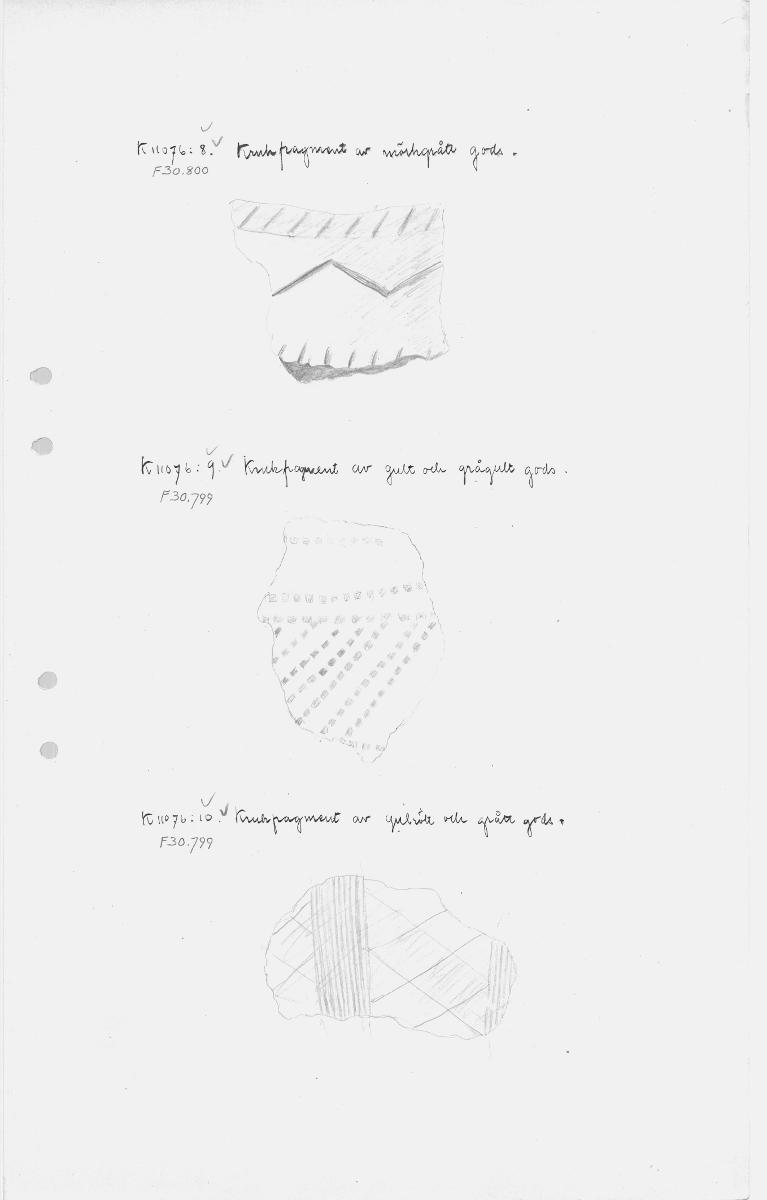 K 11076: 8. Krukfragment av mörkgrått gods.
F30.800
K 11076: 9. Krukfragment av gult och grågult gods.
F30.799
K 11076: 10. Krukfragment av gulrött och grått gods.
F30.799